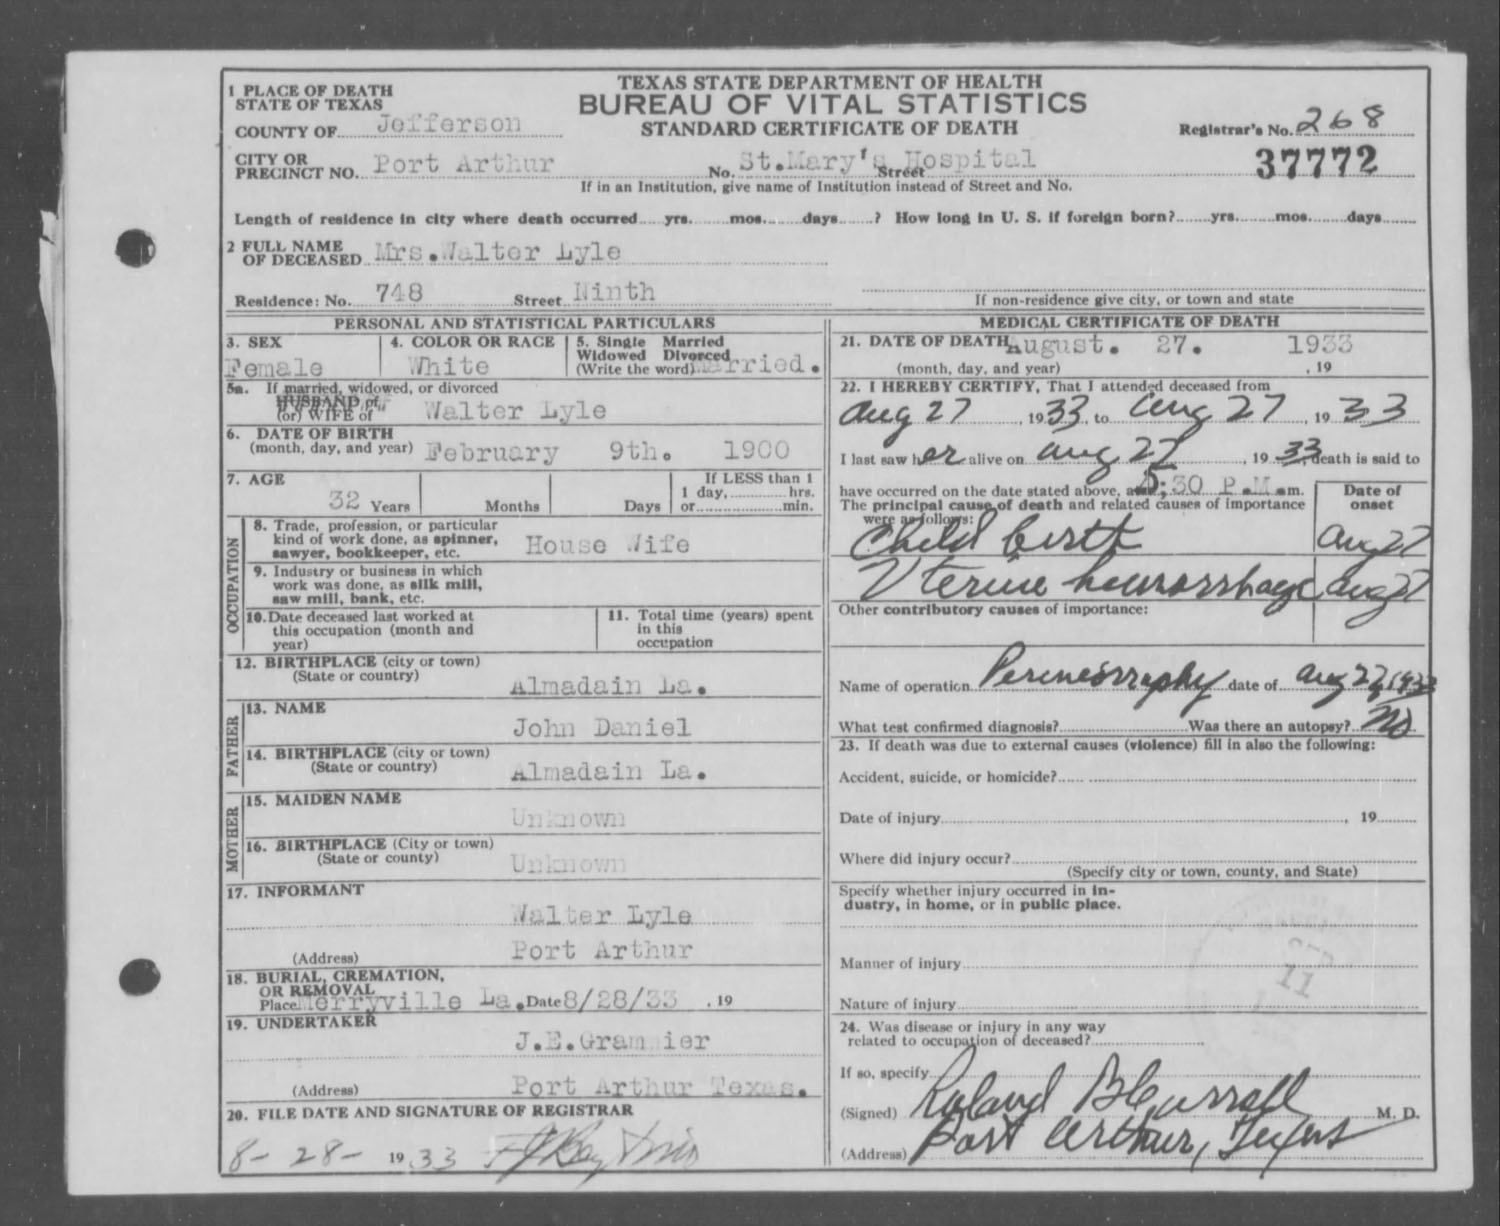 TEXAS STATE DEPARTMENT OF HEALTH
BUREAU OF VITAL STATISTICS
STANDARD CERTIFICATE OF DEATH
1 PLACE OF DEATH
STATE OF TEXAS
COUNTY OF Jefferson
Registrar's No. 268
37772
CITY OR PRECINCT NO. Port Arthur No. St.Mary's Hospital Street
If in an Institution, give name of Institution instead of Street and No.
Length of residence in city where death occurred yrs. mos. days ? How long in U. S. if foreign born? yrs. mos. days
2 FULL NAME OF DECEASED Mrs.Walter Lyle
Residence: No. 748 Street Ninth
If non-residence give city, or town and state
PERSONAL AND STATISTICAL PARTICULARS
3. SEX Female
4. COLOR OR RACE White
5. Single Married Widowed Divorced (Write the word) Married.
5a. If married, widowed, or divorced
HUSBAND of
(or) WIFE of Walter Lyle
6. DATE OF BIRTH
(month, day, and year) February 9th. 1900
7. AGE
32 Years Months Days
If LESS than 1
1 day, hrs.
or min.
OCCUPATION
8. Trade, profession, or particular
kind of work done, as spinner,
sawyer, bookkeeper, etc. House Wife
9. Industry or business in which
work was done, as silk mill,
saw mill, bank, etc.
10. Date deceased last worked at
this occupation (month and
year)
11. Total time (years) spent
in this
occupation
12. BIRTHPLACE (city or town)
(State or country) Almadain La.
FATHER
13. NAME John Daniel
14. BIRTHPLACE (city or town)
(State or country) Almadain La.
MOTHER
15. MAIDEN NAME Unknown
16. BIRTHPLACE (City or town)
(State or county) Unknown
17. INFORMANT
Walter Lyle
(Address) Port Arthur
18. BURIAL, CREMATION,
OR REMOVAL
Place Merryville La. Date 8/28/33 . 19
19. UNDERTAKER
J.E.Grammier
(Address) Port Arthur Texas.
20. FILE DATE AND SIGNATURE OF REGISTRAR
8- 28- 19 33
MEDICAL CERTIFICATE OF DEATH
21. DATE OF DEATH August. 27. 1933
(month, day, and year) , 19
22. I HEREBY CERTIFY, That I attended deceased from
Aug 27, 1933, to Aug 27, 1933
I last saw her alive on Aug 27, 1933, death is said to
have occurred on the date stated above, at 5;30 P.M. m.
The principal cause of death and related causes of importance
were as follows:
Date of onset
Child birth Aug 27
Uterine hemorrhage Aug 27
Other contributory causes of importance:
Name of operation Perineorraphy date of Aug 27, 1933
What test confirmed diagnosis? Was there an autopsy? No
23. If death was due to external causes (violence) fill in also the following:
Accident, suicide, or homicide?
Date of injury , 19
Where did injury occur?
(Specify city or town, county, and State)
Specify whether injury occurred in industry, in home, or in public place.
Manner of injury
Nature of injury
11
24. Was disease or injury in any way
related to occupation of deceased?
If so, specify
(Signed) Roland M. D.
(Address) Port Arthur, Texas